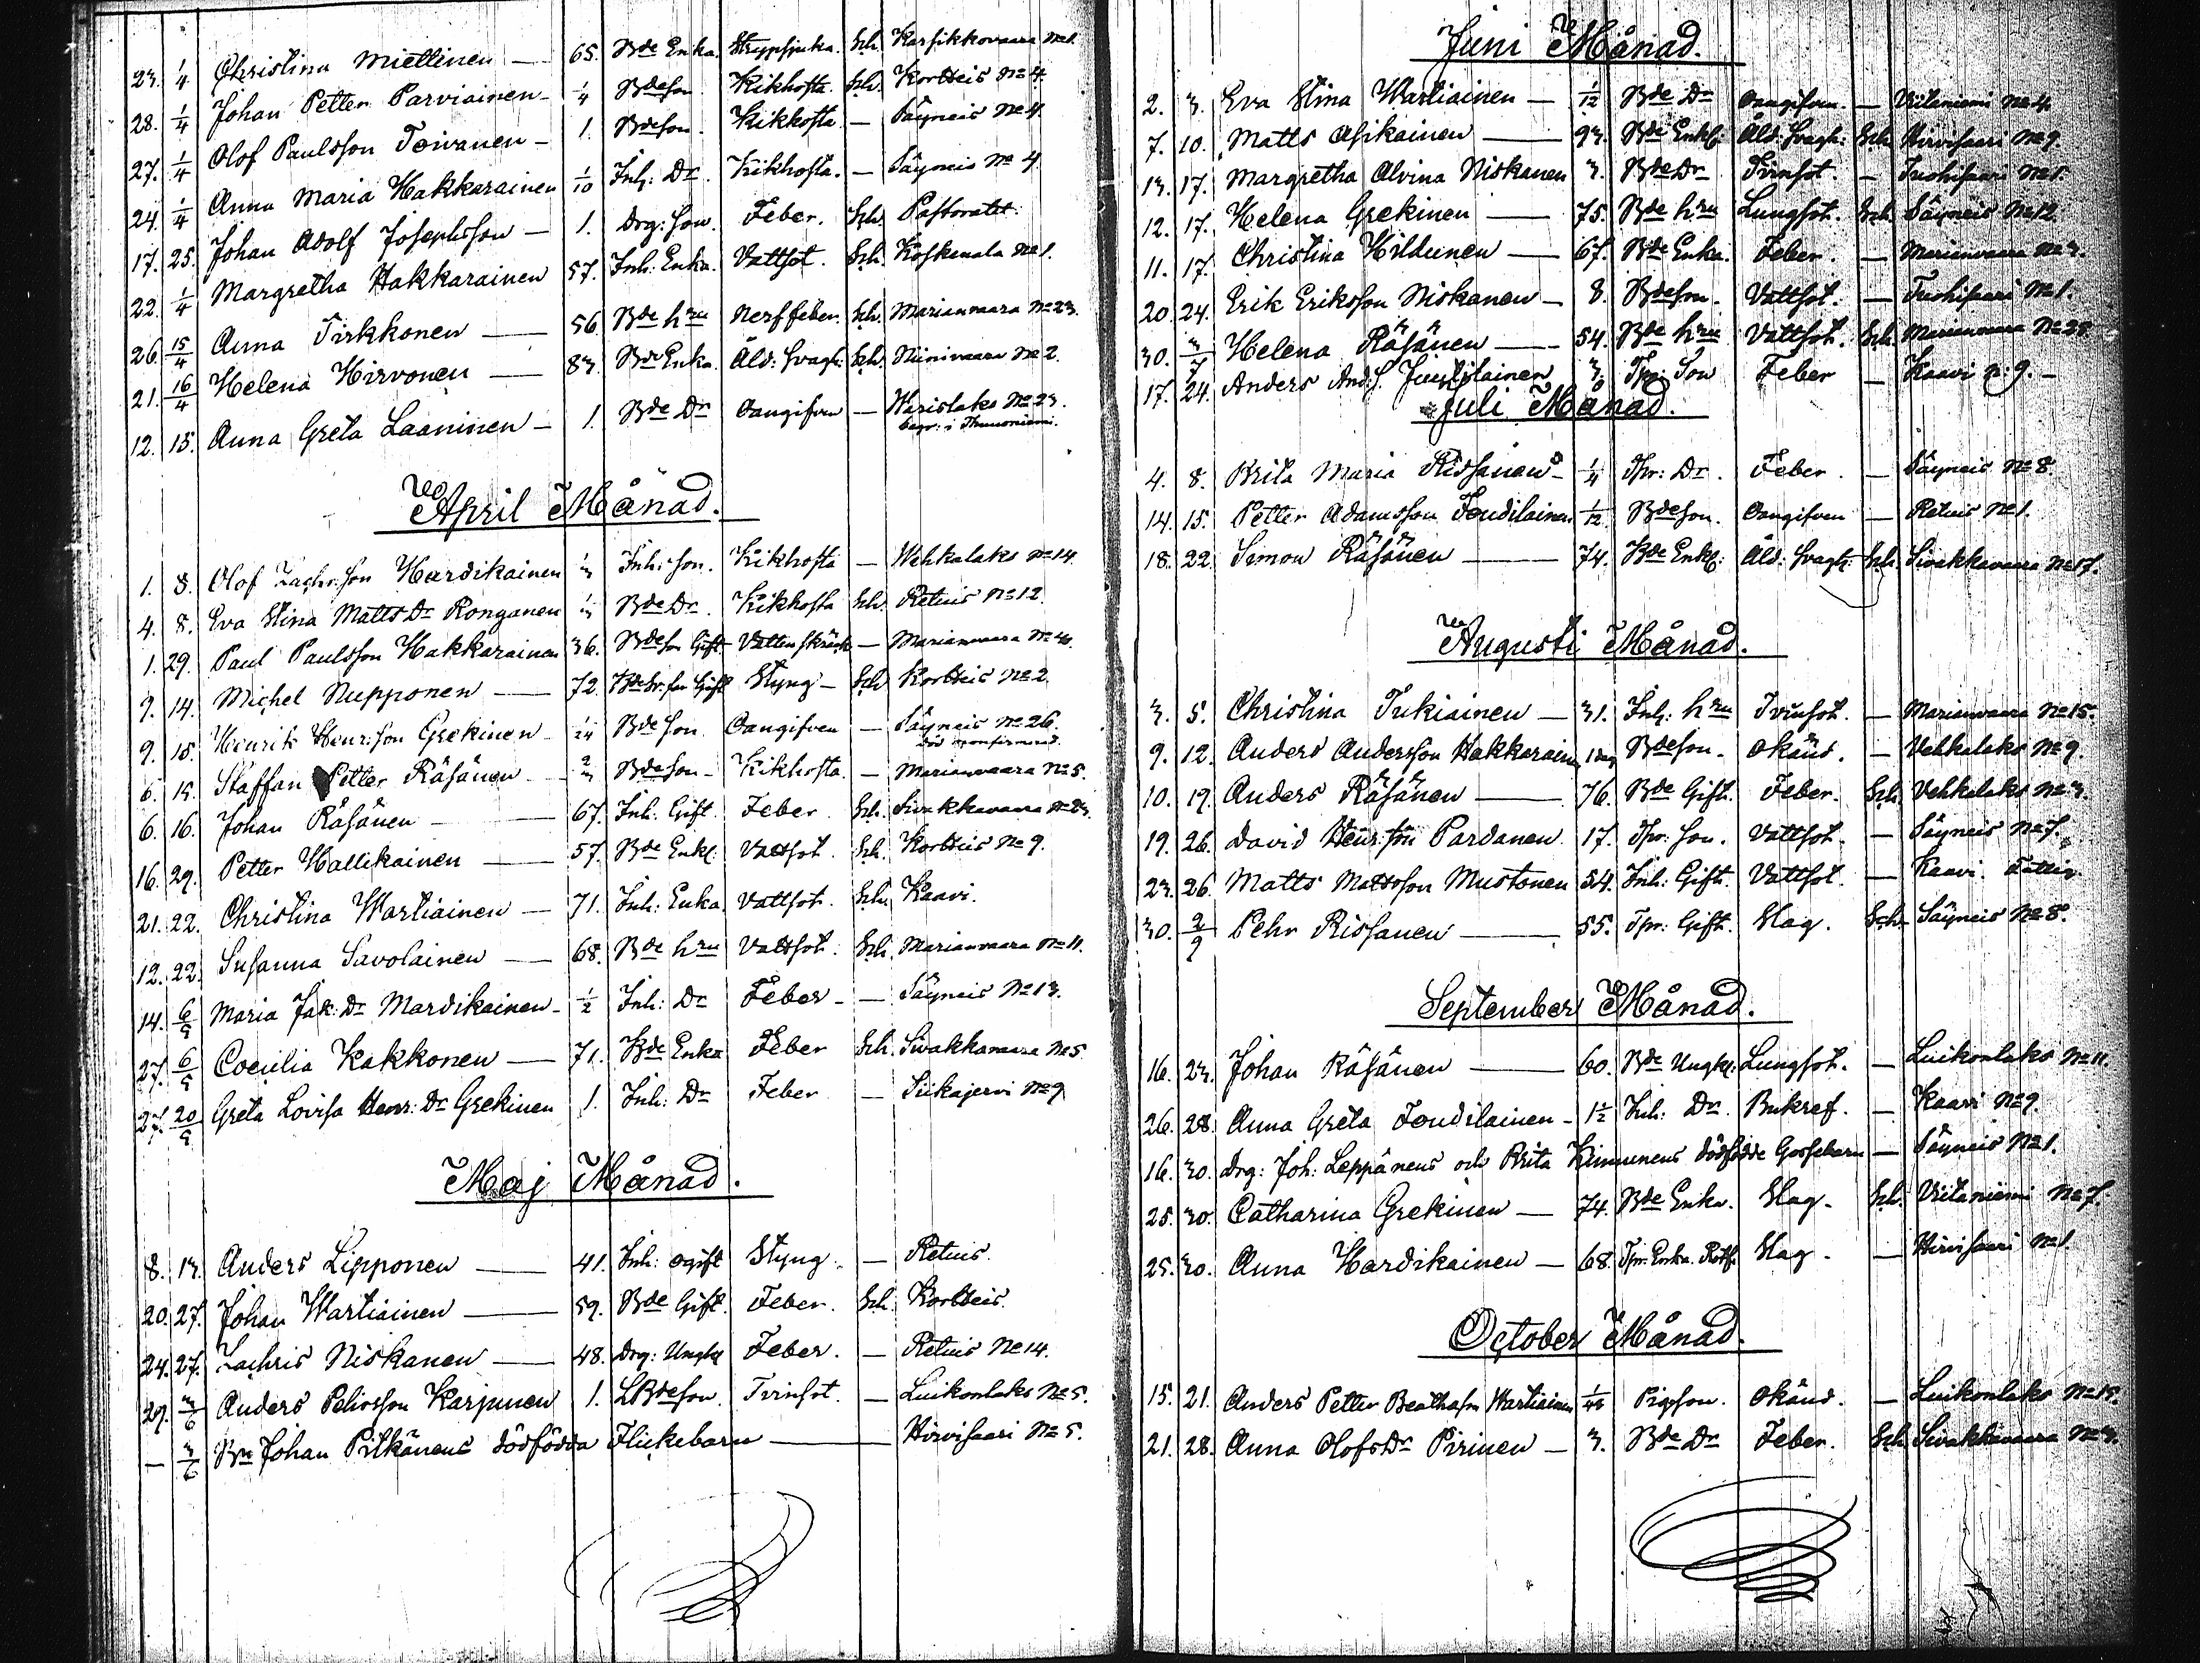 23. 1/4 Christina Miettinen — 65. Bde Enka. Strypsjuka. Sch. Karsikkovaara No 1.
28. 1/4 Johan Petter Parviainen — 1/4 Bdeson. Kikhosta. Sch. Kortteis No 4.
27. 1/4 Olof Paulsson Toivanen — 1. Bdeson. Kikhosta — Säyneis No 4.
24. 1/4 Anna Maria Hakkarainen 1/10 Inh: Dr. Kikhosta. — Säyneis No 4.
17. 25. Johan Adolf Josephsson — 1. Drg: Son. Feber. Sch. Pastoratet.
22. 1/4 Margretha Hakkarainen 57. Inh: Enka. Vattsot. Sch. Koskenala No 1.
26. 15/4 Anna Tirkkonen — 56. Bde hru Nerffeber. Sch. Marianvaara No 23.
21. 16/4 Helena Hirvonen — 83. Bde Enka Åld: svagh: Sch. Niinivaara No 2.
12. 15. Anna Greta Laaninen — 1. Bde Dr Oangifven — Waristaks No 23.
begr: i
April Månad.
1. 8. Olof Zachr:son Hardikainen 1/3 Inh: son. Kikhosta — Wehkalaks No 14
4. 8. Eva Stina Matts Dr Ronganen 1/3 Bde Dr. Kikhosta Sch. Retuis No 12.
1. 29. Paul Paulsson Hakkarainen 36. Bdeson Gift — Marianvaara
9. 14. Michel Nupponen — 72. Gift Styng — Sch Kortteis No 2.
9. 15. Henrik Henr:son Grekinen — 1/24 Bde son Oangifven — Säyneis No 26.
6. 15. Staffan Petter Räsänen — 2/3 Bdeson — Kikhosta. — Marianvaara No 5.
6. 16. Johan Räsänen — 67. Inh: Gift. Feber Sch. Sivakkavaara
16. 29. Petter Hallikainen — 57. Bde Enkl: Vattsot Sch. Kortteis No 9.
21. 22. Christina Wartiainen — 71. Inh: Enka Vattsot. Sch. Kaavi.
12. 22. Susanna Savolainen — 68. Bde hru Vattsot. Sch. Marianvaara No 11.
14. 6/5 Maria Jak: Dr Mardikainen — 1/2 Inh: Dr Feber — — Säyneis No 13.
27. 6/5 Coecilia Kakkonen — 71. Bde Enka Feber Sch. Sivakkavaara No 5
27. 20/5 Greta Lovisa Henr: Dr Grekinen 1. Inh: Dr Feber — Siikajervi No 9
Maj Månad.
8. 13. Anders Lipponen — 41. Inh: ogift Styng. — Retuis.
20. 27. Johan Wartiainen — 59. Bde Gift. Feber. Sch. Kortteis.
24. 27. Zachris Niskanen — 48. Drg: Ungkl Feber. — Retuis No 14.
29. 3/6 Anders Pehrsson Karjunen 1. LBdeson. Tvinsot. — Luikonlaks No 5.
— 3/6 Bn Johan Pitkänens dödfödda Flickebarn — Hirvisaari No 5.
Juni Månad.
2. 3. Eva Stina Wartiainen — 1/12 Bde Dr Oangifven. — Viitaniemi No 4.
7. 10. Matts Asikainen — 93. Bde Enkl: Åld: svagh: Sch. Hirvisaari No 9.
13. 17. Margretha Alvina Niskanen 3. Bde Dr Tvinsot. — Tuohisaari No 1.
12. 17. Helena Grekinen — 75. Bde hru Lungsot. Sch. Säyneis No 12.
11. 17. Christina Hildunen — 67. Bde Enka. Feber. — Marianvaara No 3.
20. 24. Erik Eriksson Niskanen — 8. Bdeson. Vattsot. — Tuohisaari No 1.
30. 3/7 Helena Räsänen — 54. Bde hru Vattsot. Sch. Marianvaara No 28
17. 24. Anders And:s. Juutilainen Tpr: Son Feber — Kaavi n: 9. —
Juli Månad.
4. 8. Brita Maria Rissanen — 1/4 Tpr: Dr. Feber. — Säyneis No 8.
14. 15. Petter Adamsson Toudilainen 1/12 Bdeson. Oangifven — Retuis No 1.
18. 22. Simon Räsänen — 74. Bde Enkl: Åld: svagh: Sch. Sivakkavaara No 17.
Augusti Månad.
3. 5. Christina Tukiainen — 31. Inh: hru Tvinsot. — Marianvaara No 15.
9. 12. Anders Andersson Hakkarainen 1 dag Bdeson. okänd. — Vehkalaks No 9.
10. 19. Anders Räsänen — 76. Bde Gift. Feber. Sch. Vehkalaks No 3.
19. 26. David Henr:son Pardanen 17. Tpr: son. Vattsot. — Säyneis No 7.
23. 26. Matts Mattsson Mustonen 54. Inh: Gift. Vattsot. — Kaavi. Fattig.
30. 2/9 Pehr Rissanen — 55. Tpr: Gift. Slag. Sch. Säyneis No 8.
September Månad.
16. 23. Johan Räsänen — 60. Bde Ungkl: Lungsot. — Luikonlaks No 11.
26. 28. Anna Greta Toudilainen — 1 1/2 Inh: Dr. Bukref. — Kaavi No 9.
16. 30. Drg: Joh: Leppänens och Brita Kinnunens dödfödde Gossebarn — Säyneis No 1.
25. 30. Catharina Grekinen — 74. Bde Enka. Slag. Sch. Viitaniemi No 7.
25. 30. Anna Hardikainen — 68. Tpr: Enka Slag. — Hirvisaari No 1.
October Månad.
15. 21. Anders Petter Beathason Wartiainen Pigeson. okänd. — Luikonlaks No 15.
21. 28. Anna Olofs Dr Pirinen — 3. Bde Dr Feber. Sch Sivakkavaara No 3.